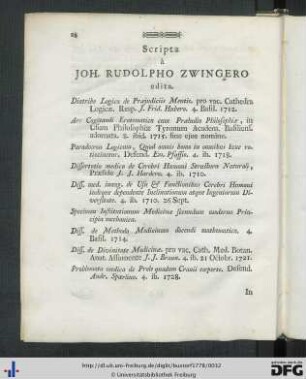 24
Scripta
à
JOH. RUDOLPHO ZWINGERO
edita.
Diatribe Logica de Præjudiciis Mentis. pro vac. Cathedra
Logicæ. Resp. J. Frid. Hubero. 4. Basil. 1712.
Ars Cogitandi Erotematica cum Præludio Philosophiæ, in
Usum Philosophiæ Tyronum Academ. Basiliens.
adornata. 8. ibid. 1715. sine ejus nomine.
Paradoxon Logicum, Quod omnis homo in omnibus bene
ratiocinetur. Defend. Em. Pfaffio. 4. ib. 1715.
Dissertatio medica de Cerebri Humani Structura Naturali,
Præside J. J. Hardero. 4. ib. 1710.
Diss. med. inaug. de Usu & Functionibus Cerebri Humani
indeque dependente Inclinationum atque Ingeniorum Di-
versitate. 4. ib. 1710. 26 Sept.
Specimen Institutionum Medicinæ secundum moderna Prin-
cipia methodica.
Diss. de Methodo Medicinam docendi mathematica. 4.
Basil. 1714.
Diss. de Divinitate Medicinæ. pro vac. Cath. Med. Botan.
Anat. Assumente J. J. Brunn. 4. ib. 21 Octobr. 1721.
Problemata medica de Probe quadam Cranii corporis. Defend.
Andr. Spartino. 4. ib. 1728.
In
http://dl.ub.uni-freiburg.de/diglit/buxtorf1778/0032
© Universitätsbibliothek Freiburg
gefördert durch die
DFG